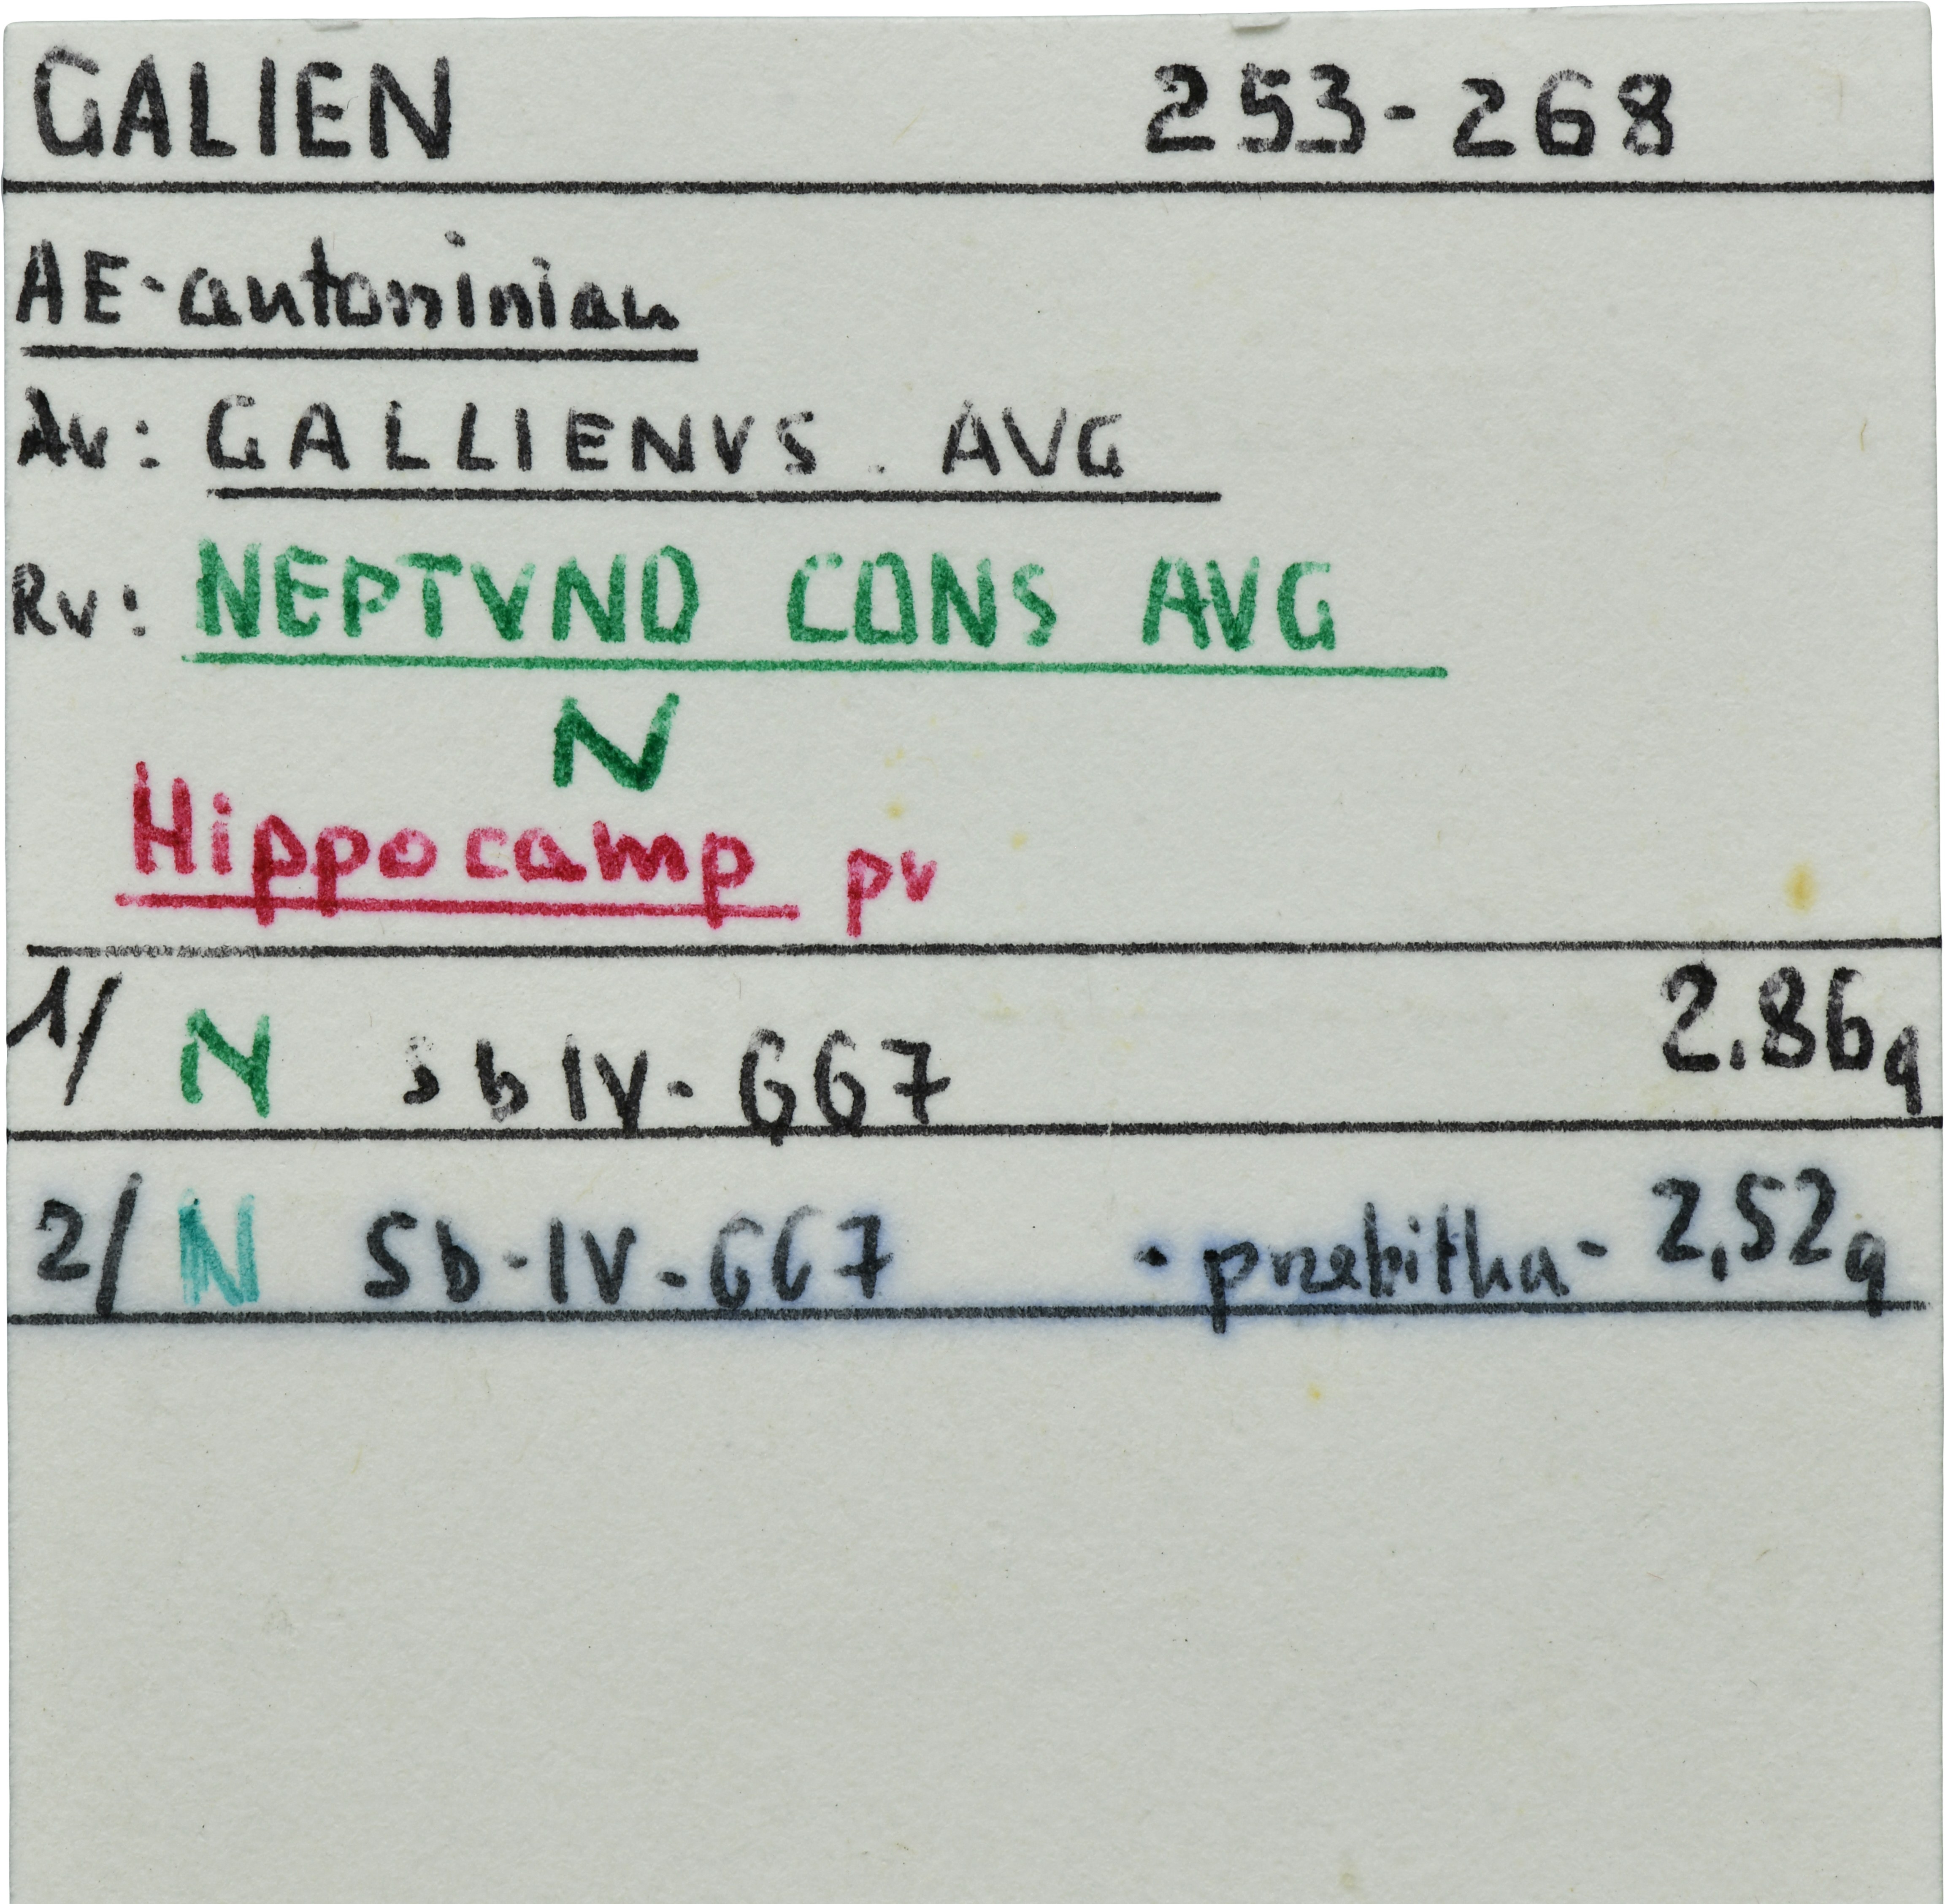 GALIEN 253-268
AE-antoninian
Av: GALLIENVS. AVG
Rv: NEPTVNO CONS AVG
N
Hippocamp pv
1/ N Sb IV-667 2.86g
2/ N Sb-IV-667 - przebitka - 2,52g